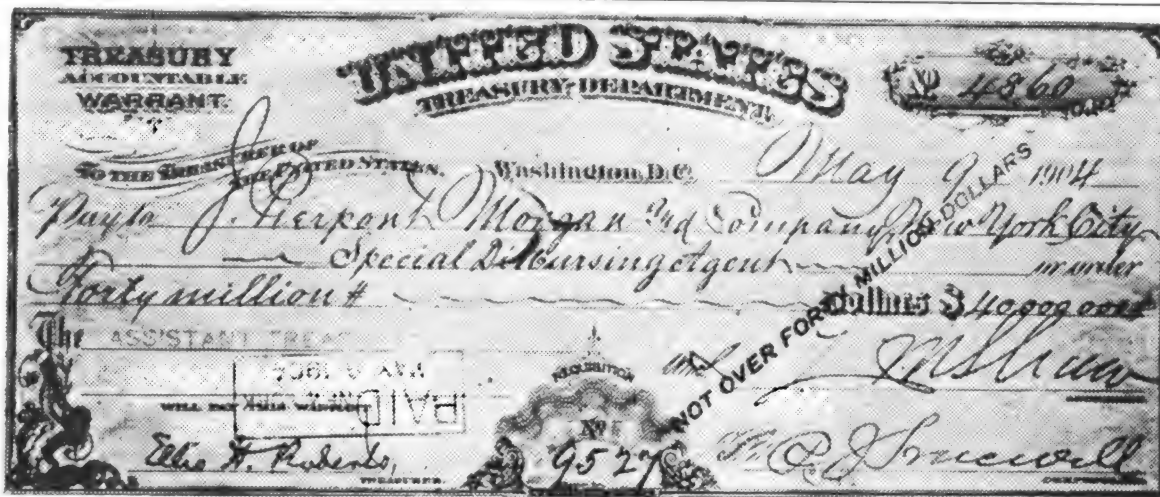 TREASURY
ACCOUNTABLE
WARRANT.
UNITED STATES
TREASURY DEPARTMENT.
4860
TO THE TREASURER OF
THE UNITED STATES.
Washington, D.C. May 9 1904
Pay to J. Pierpont Morgan and Company, New York City
Special Disbursing Agent or order
Forty million # Dollars $ 40,000,000
NOT OVER FORTY MILLION DOLLARS
The ASSISTANT TREAS
PAID
WILL PAY THIS WARRANT
REQUISITION
No
9527
Ellis H. Roberts,
TREASURER.
COMPTROLLER.